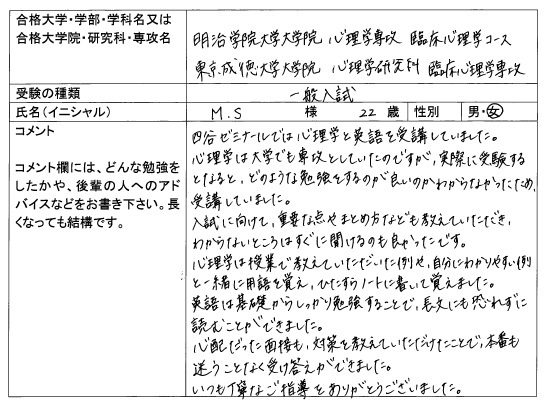 合格大学・学部・学科名又は
合格大学院・研究科・専攻名
明治学院大学大学院 心理学専攻 臨床心理学コース
東京成徳大学大学院 心理学研究科 臨床心理学専攻
受験の種類
一般入試
氏名(イニシャル)
M.S 様 22 歳 性別 男・女
コメント
コメント欄には、どんな勉強を
したかや、後輩の人へのアド
バイスなどをお書き下さい。長
くなっても結構です。
四谷ゼミナールでは心理学と英語を受講していました。
心理学は大学でも専攻としていたのですが、実際に受験する
となると、どのような勉強をするのが良いのかわからなかったため、
受講していました。
入試に向けて、重要な点やまとめ方なども教えていただき、
わからないところはすぐに聞けるのも良かったです。
心理学は授業で教えていただいた例や、自分にわかりやすい例
と一緒に用語を覚え、ひたすらノートに書いて覚えました。
英語は基礎からしっかり勉強することで、長文にも恐れずに
読むことができました。
心配だった面接も、対策を教えていただけたことで、本番も
迷うことなく受け答えができました。
いつも丁寧なご指導をありがとうございました。